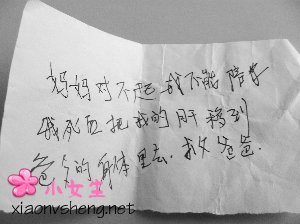 妈妈对不起我不能陪你
我死后把我的肝移到
爸爸的身体里去.救父爸爸.
小女生
xiaonvsheng.net